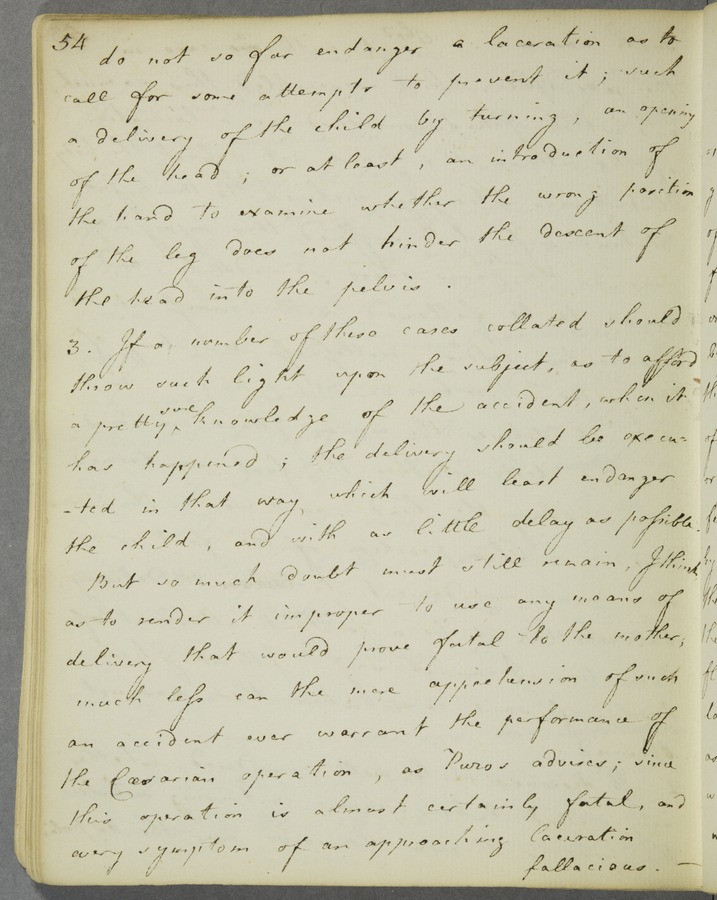 54
do not so far endanger a laceration as to
call for some attempts to prevent it; such
a delivery of the child by turning, an opening
of the head; or at least, an introduction of
the hand to examine whether the wrong position
of the leg does not hinder the descent of
the head into the pelvis.
3. If a number of these cases collated should
throw such light upon the subject, as to afford
a pretty sure knowledge of the accident, when it
has happened; the delivery should be execu=
-ted in that way which will least endanger
the child, and with as little delay as possible.
But so much doubt must still remain, I think
as to render it improper to use any means of
delivery that would prove fatal to the mother;
much less can the mere apprehension of such
an accident ever warrant the performance of
the Cæsarian operation, as advises; since
this operation is almost certainly fatal, and
every symptom of an approaching laceration
fallacious. —